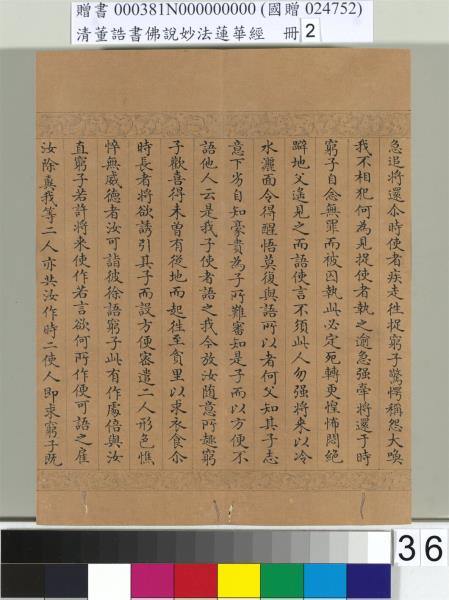 贈書 000381N000000000 (國贈 024752)
清董誥書佛說妙法蓮華經 冊 2
急追將還尒時使者疾走徃捉窮子驚愕稱怨大喚
我不相犯何為見捉使者執之逾急强牽將還于時
窮子自念無罪而被囚執此必定死轉更惶怖悶絕
躃地父遙見之而語使言不須此人勿强將來以冷
水灑面令得醒悟莫復與語所以者何父知其子志
意下劣自知豪貴為子所難審知是子而以方便不
語他人云是我子使者語之我今放汝随意所趣窮
子歡喜得未曾有從地而起徃至貧里以求衣食尒
時長者將欲誘引其子而設方便密遣二人形色憔
悴無威德者汝可詣彼徐語窮子此有作處倍與汝
直窮子若許將來使作若言欲何所作便可語之雇
汝除糞我等二人亦共汝作時二使人即求窮子既
36